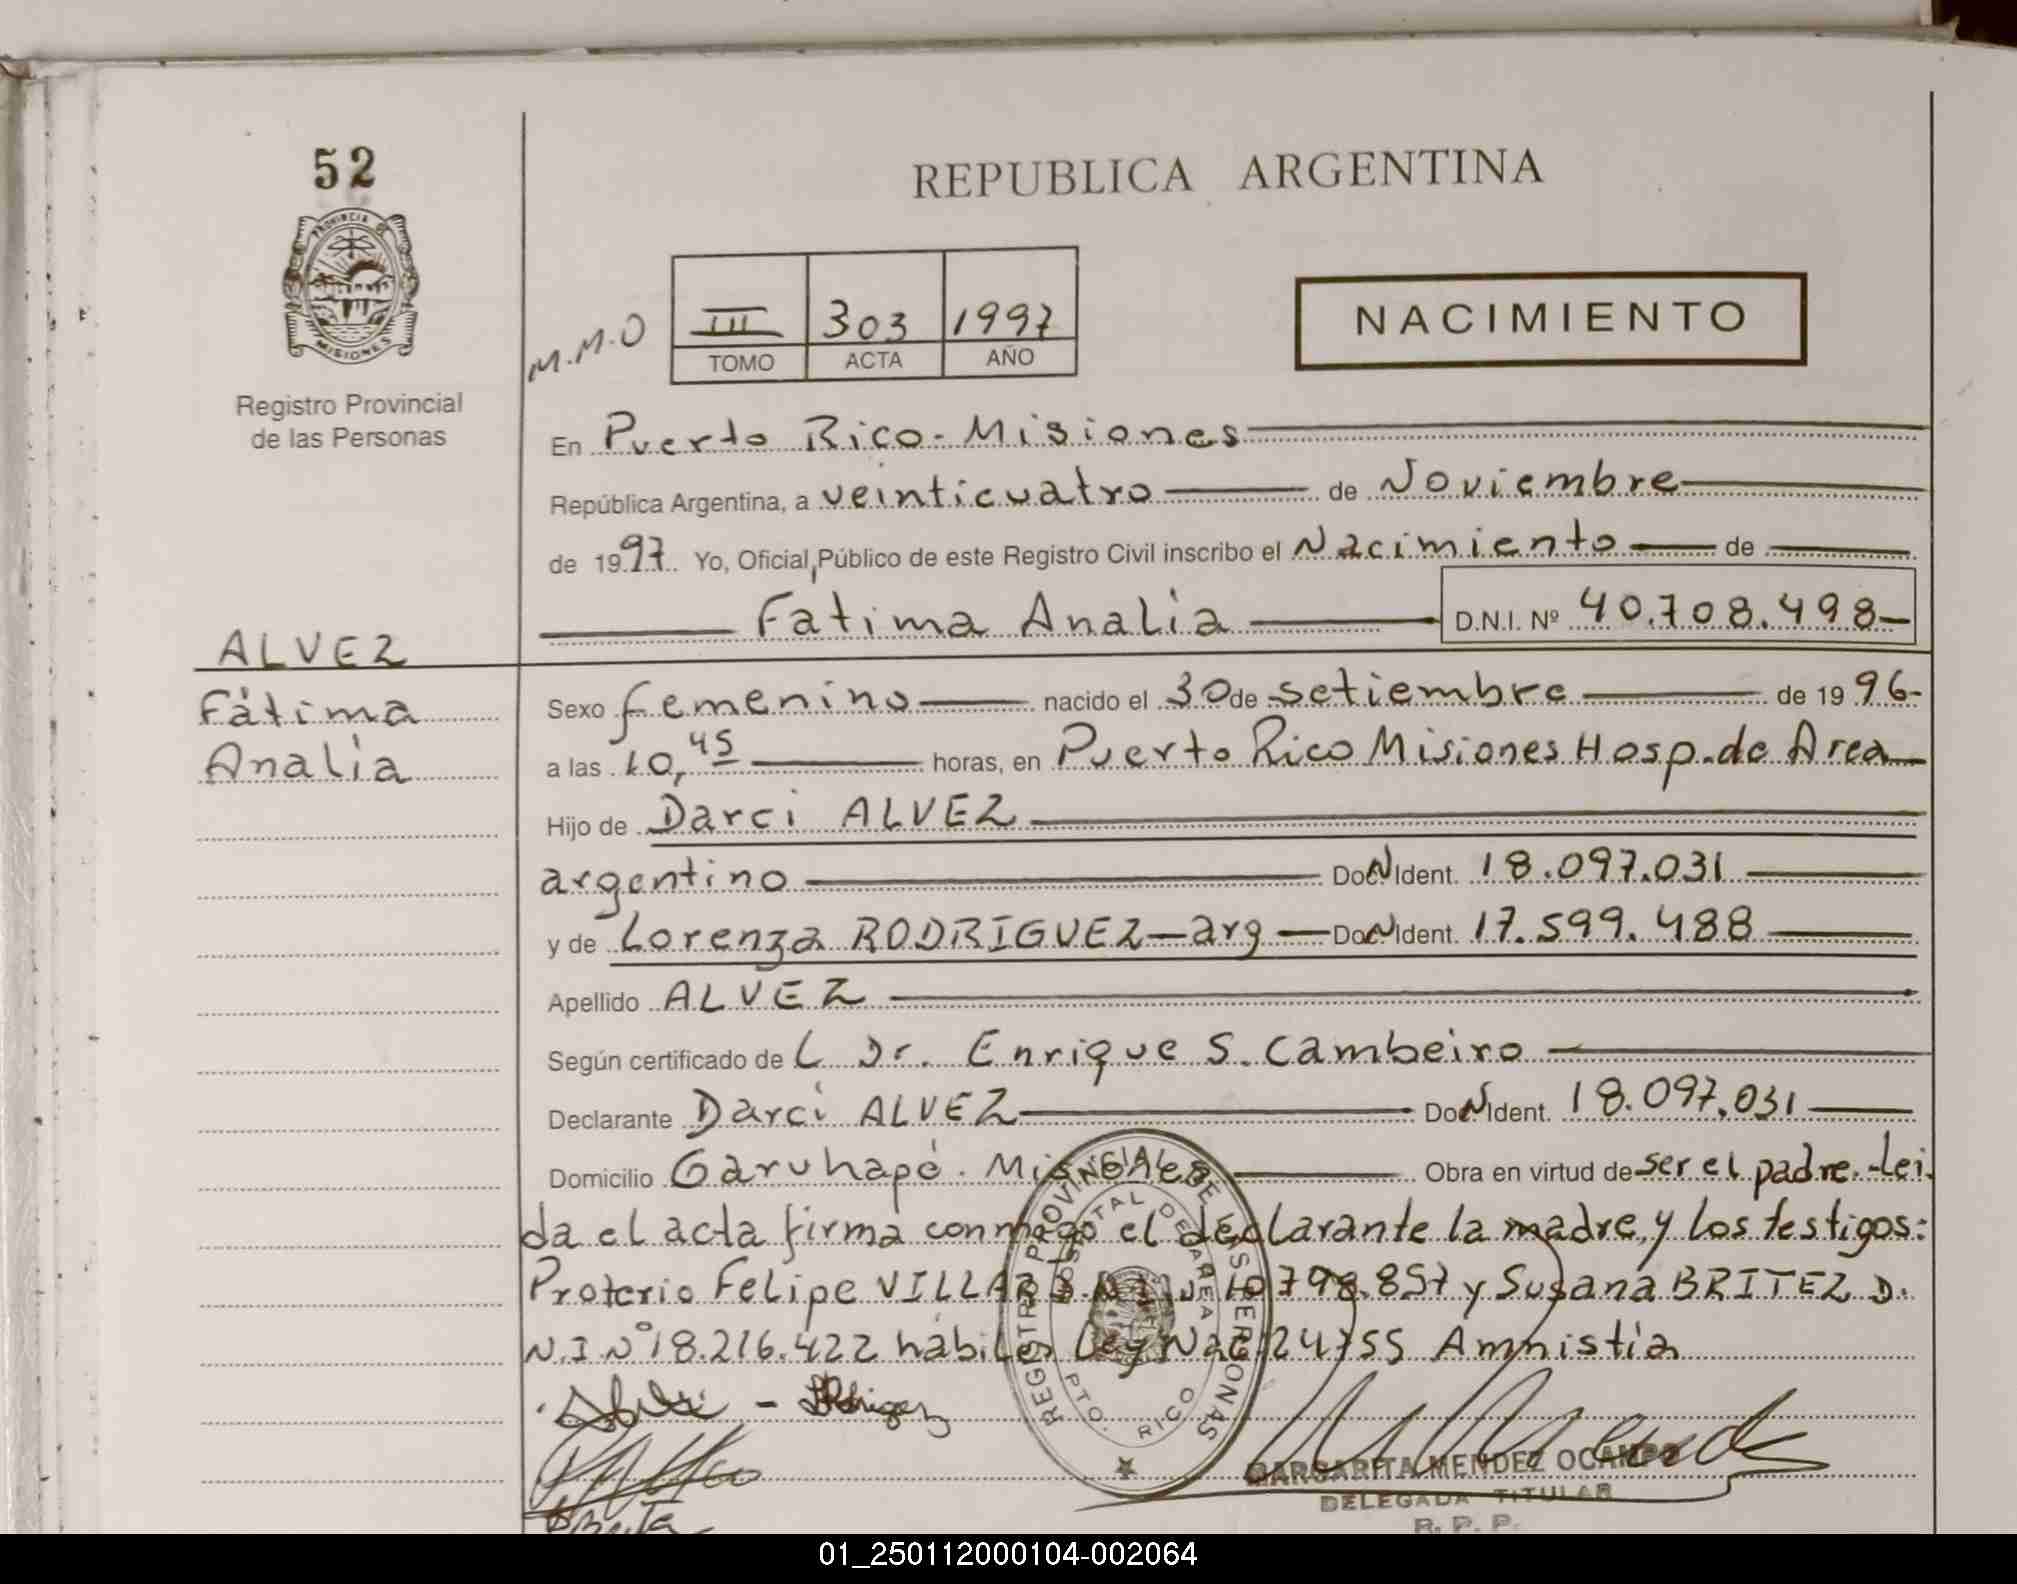 52
PROVINCIA DE
MISIONES
Registro Provincial
de las Personas
REPUBLICA ARGENTINA
M.M.O
III 303 1997
TOMO ACTA AÑO
NACIMIENTO
En Puerto Rico - Misiones
República Argentina, a veinticuatro de Noviembre
de 1997. Yo, Oficial Público de este Registro Civil inscribo el Nacimiento de
Fatima Analia D.N.I. Nº 40.708.498-
ALVEZ
Fátima
Analía
Sexo femenino nacido el 30 de setiembre de 1996-
a las 10,45 horas, en Puerto Rico Misiones Hosp. de Area
Hijo de Darci ALVEZ
argentino Doc N Ident. 18.097.031
y de Lorenza RODRIGUEZ - arg - Doc N Ident. 17.599.488
Apellido ALVEZ
Según certificado de L Dr. Enrique S. Cambeiro
Declarante Darci ALVEZ Doc N Ident. 18.097.031
Domicilio Garuhapé - Misiones Obra en virtud de ser el padre.-Lei
da el acta firma conmigo el declarante la madre, y los testigos:
Proterio Felipe 10798.857 y Susana BRITEZ D.
N.I Nº 18.216.422 hábiles Ley Nac 24755 Amnistía
REGISTRO PROVINCIAL DE LAS PERSONAS
HOSPITAL DE AREA
PTO. RICO
MARGARITA MENDEZ OCAMPO
DELEGADA TITULAR
R. P. P.
01_250112000104-002064